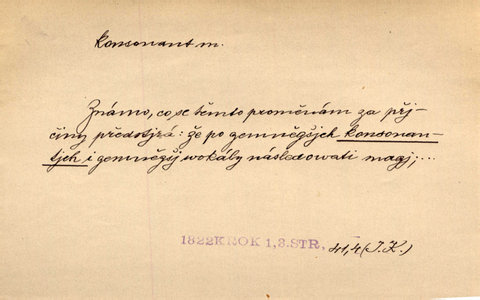 konsonant m.
Známo, co se těmto proměnám za při-
činy předstjrá: že po gemněgšjch konsonan-
tjch i gemněgšj wokály následowati magj; ...
1822 KROK 1,3. STR. 41,4 (J.K.)